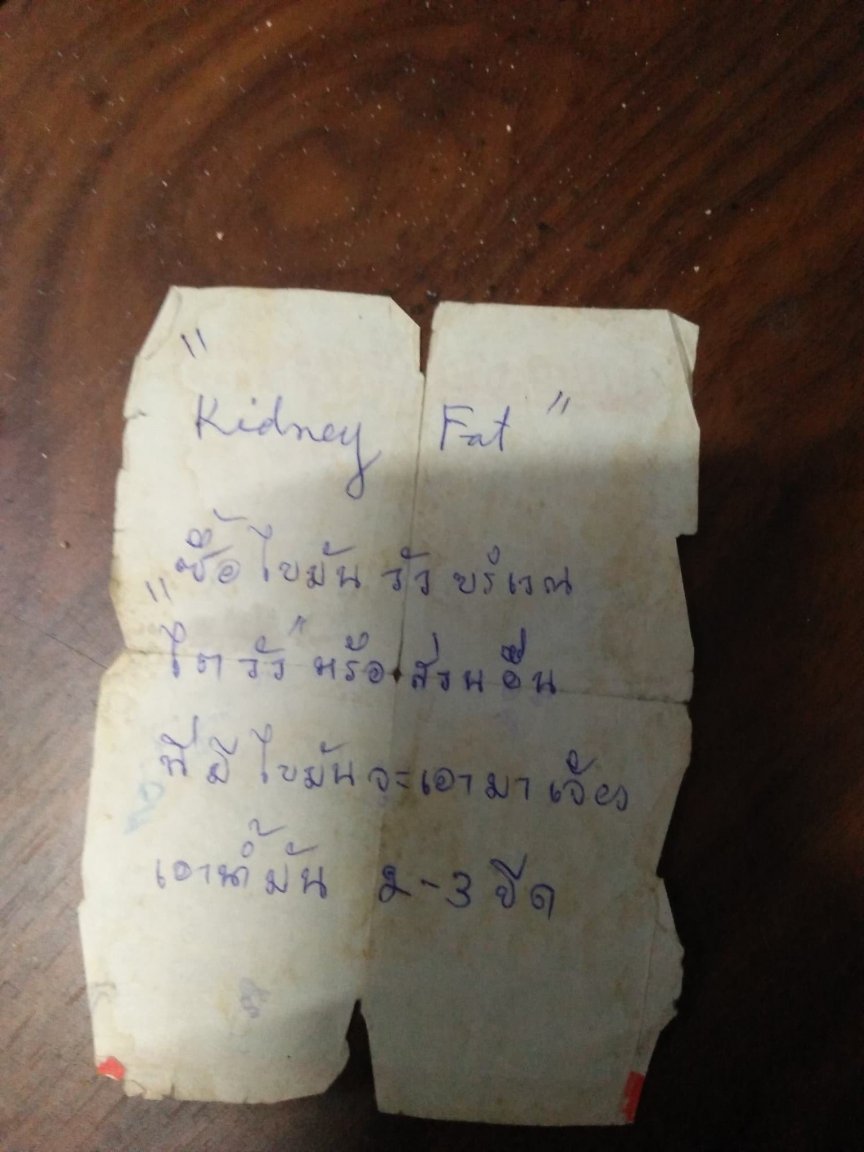 "
Kidney Fat"
ซื้อไขมันวัวบริเวณ
"ไตวัว" หรือส่วนอื่น
ที่มีไขมันจะเอามาเจียว
เอาน้ำมัน 2-3 ขีด